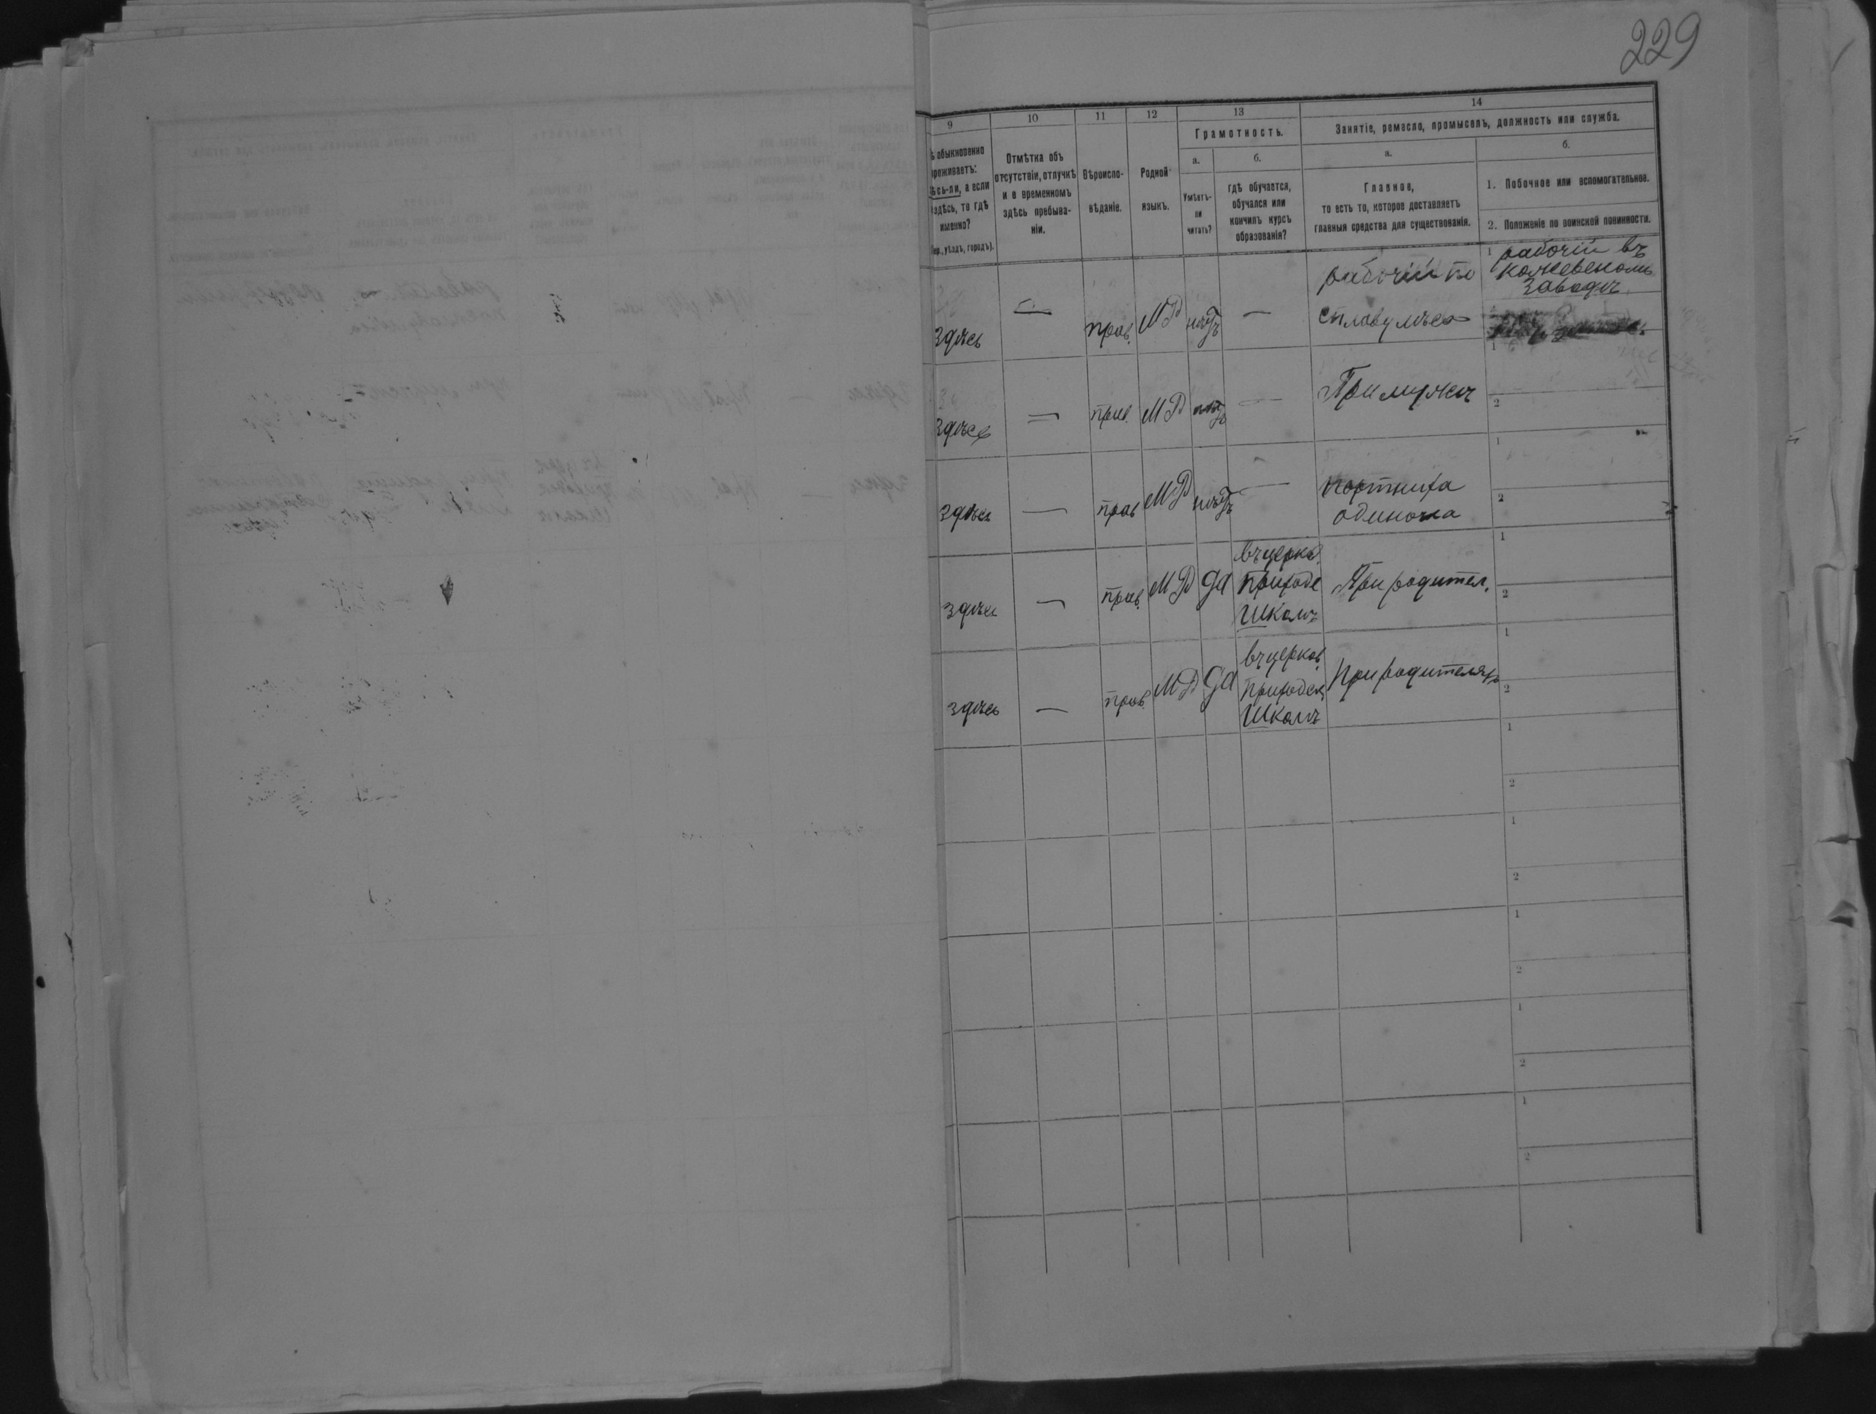 229
9
10
11
12
13
14
Грамотность.
Занятіе, ремесло, промыселъ, должность или служба.
обыкновенно
проживаетъ:
здѣсь-ли, а если
не здѣсь, то гдѣ
именно?
(Губ., уѣздъ, городъ).
Отмѣтка объ
отсутствіи, отлучкѣ
и о временномъ
здѣсь пребыва-
ніи.
Вѣроиспо-
вѣданіе.
Родной
языкъ.
а.
Умѣетъ-
ли
читать?
б.
гдѣ обучается,
обучался или
кончилъ курсъ
образованія?
а.
Главное,
то есть то, которое доставляетъ
главныя средства для существованія.
б.
1. Побочное или вспомогательное.
2. Положеніе по воинской повинности.
здѣсь
—
прав.
МР
нѣтъ
—
рабочій по
сплаву лѣса
1 рабочій въ
кожевеномъ
заводѣ
здѣсь
—
прав.
МР
нѣтъ
—
При мужѣ
1
2
здѣсь
—
прав
МР
нѣтъ
—
портниха
одиночка
1
2
здѣсь
—
прав.
МР
да
въ церков.
приходс
школѣ
При родител.
1
2
здѣсь
—
прав.
МР
да
въ церков.
приходск.
школѣ
При родителяхъ
1
2
1
2
1
2
1
2
1
2
1
2